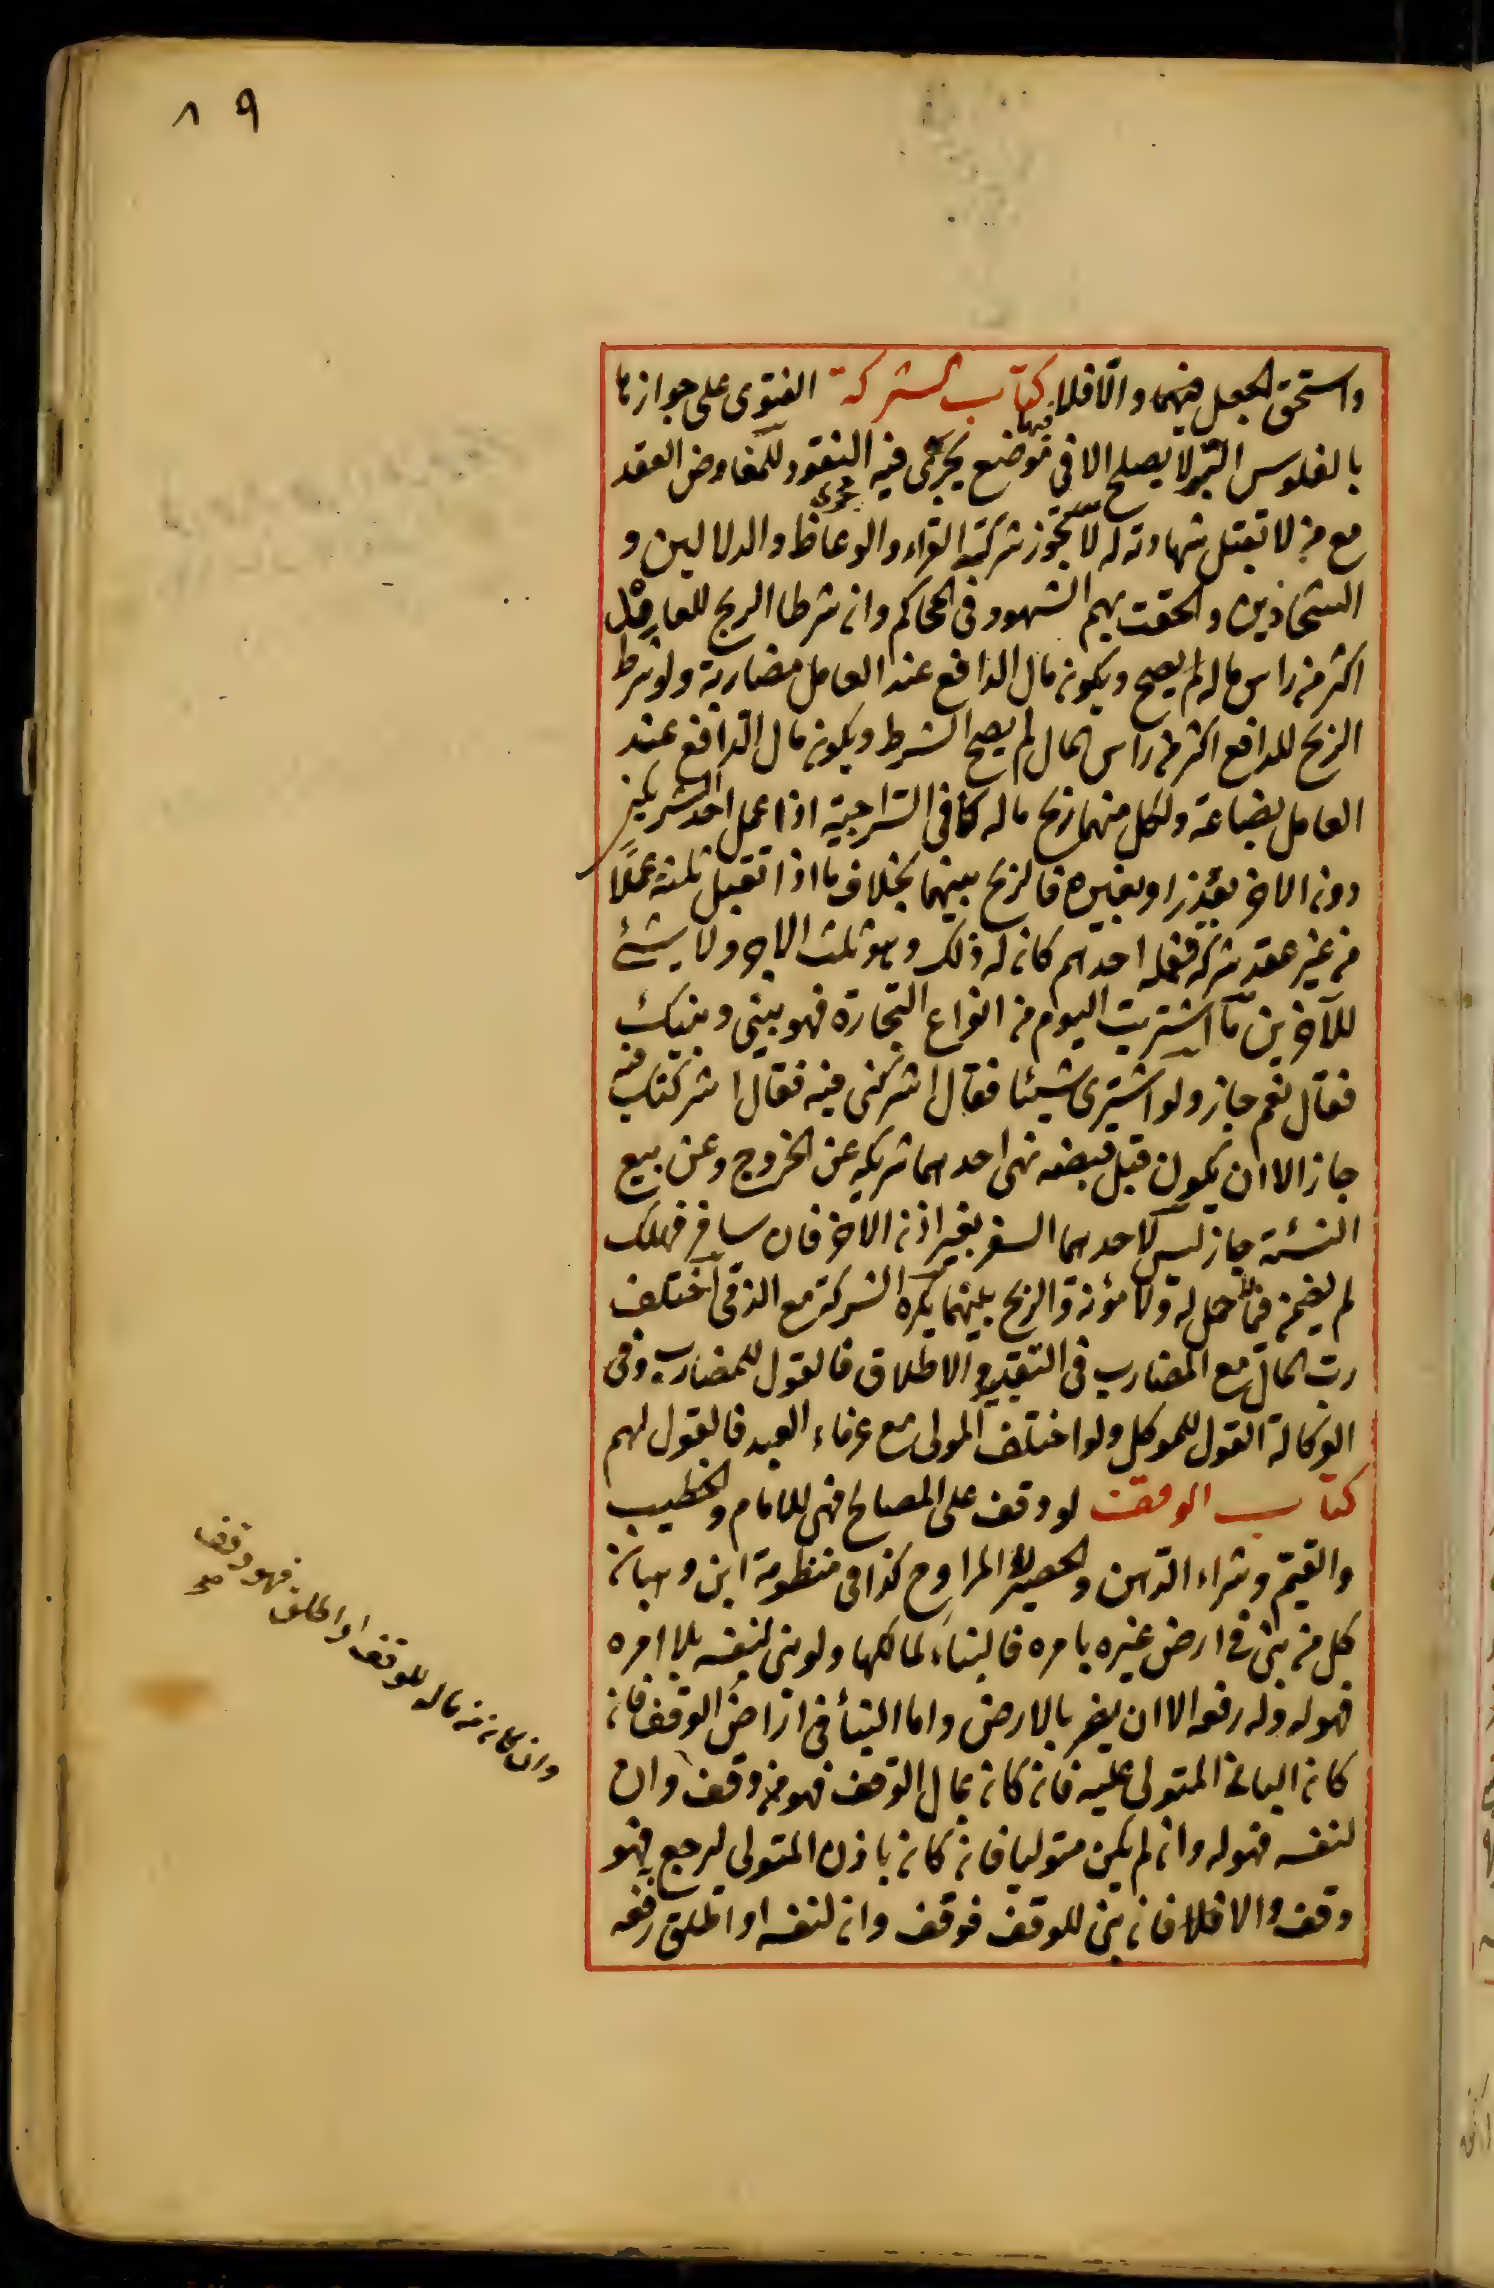 ٨٩
واستحق الجعل فيهما والا فلا كتاب الشركة الفتوى على جوازها
بالفلوس التبر لا يصلح الا في موضع يجرى فيه النقود للمفاوض العقد
فيها
مجرى
مع من لا تقبل شهادته له لا تجوز شركة القراء والوعاظ والدلالين و
الشحاذين والحقت بهم الشهود فى المحاكم وان شرطا الربح للعامل
اكثر من راس ماله لم يصح ويكون مال الدافع عند العامل مضاربة ولو شرط
الربح للدافع اكثر من راس المال لم يصح الشرط ويكون مال الدافع عند
العامل بضاعة ولكل منهما ربح ماله كما فى السراجية اذا عمل احد الشريكين
دون الاخر بعذر او بغيره فالربح بينهما بخلاف ما اذا تقبل ثلثة عملا
من غير عقد شركة فعمله احدهم كان له ذلك وهو ثلث الاجر ولا شئ
للآخرين ما اشتريت اليوم من انواع التجارة فهو بينى وبينك
فقال نعم جاز ولو اشترى شيئا فقال اشركنى فيه فقال اشركتك فيه
جاز الا ان يكون قبل قبضه نهى احدهما شريكه عن الخروج وعن بيع
النسئة جاز ليس لاحدهما السفر بغير اذن الآخر فان سافر فهلك
لم يضمن فيما لا حمل له ولا مؤنة والربح بينهما يكره الشركة مع الذمى اختلف
رب المال مع المضارب فى التقييد والاطلاق فالقول للمضارب وفى
الوكالة القول للموكل ولو اختلف المولى مع غرماء العبد فالقول لهم
كتاب الوقف لو وقف على المصالح فهى للامام والخطيب
والقيم وشراء الدهن والحصير والمراوح كذا فى منظومة ابن وهبان
كل من بنى فى ارض غيره بامره فالبناء لمالكها ولو بنى لنفسه بلا امره
فهو له وله رفعه الا ان يضر بالارض واما البناء فى اراضى الوقف فان
كان البانى المتولى عليه فان كان بمال الوقف فهو وقف وان
لنفسه فهو له وان لم يكن متوليا فان كان باذن المتولى ليرجع فهو
وقف والا فلا فان بنى للوقف فوقف وان لنفسه او اطلق رفعه
وان كان من ماله للوقف او اطلق فهو وقف
صح